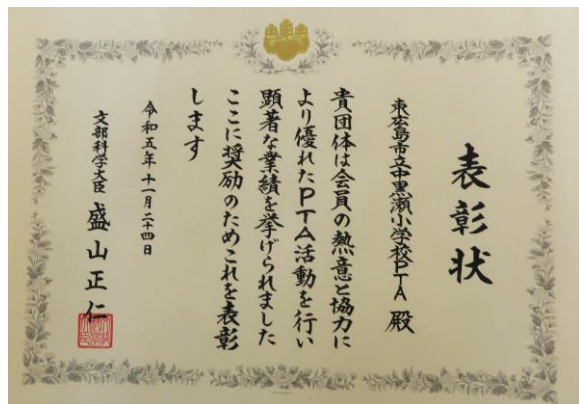 表彰状
東広島市立中黒瀬小学校PTA 殿
貴団体は会員の熱意と協力に
より優れたPTA活動を行い
顕著な業績を挙げられました
ここに奨励のためこれを表彰
します
令和五年十一月二十四日
文部科学大臣 盛山正仁